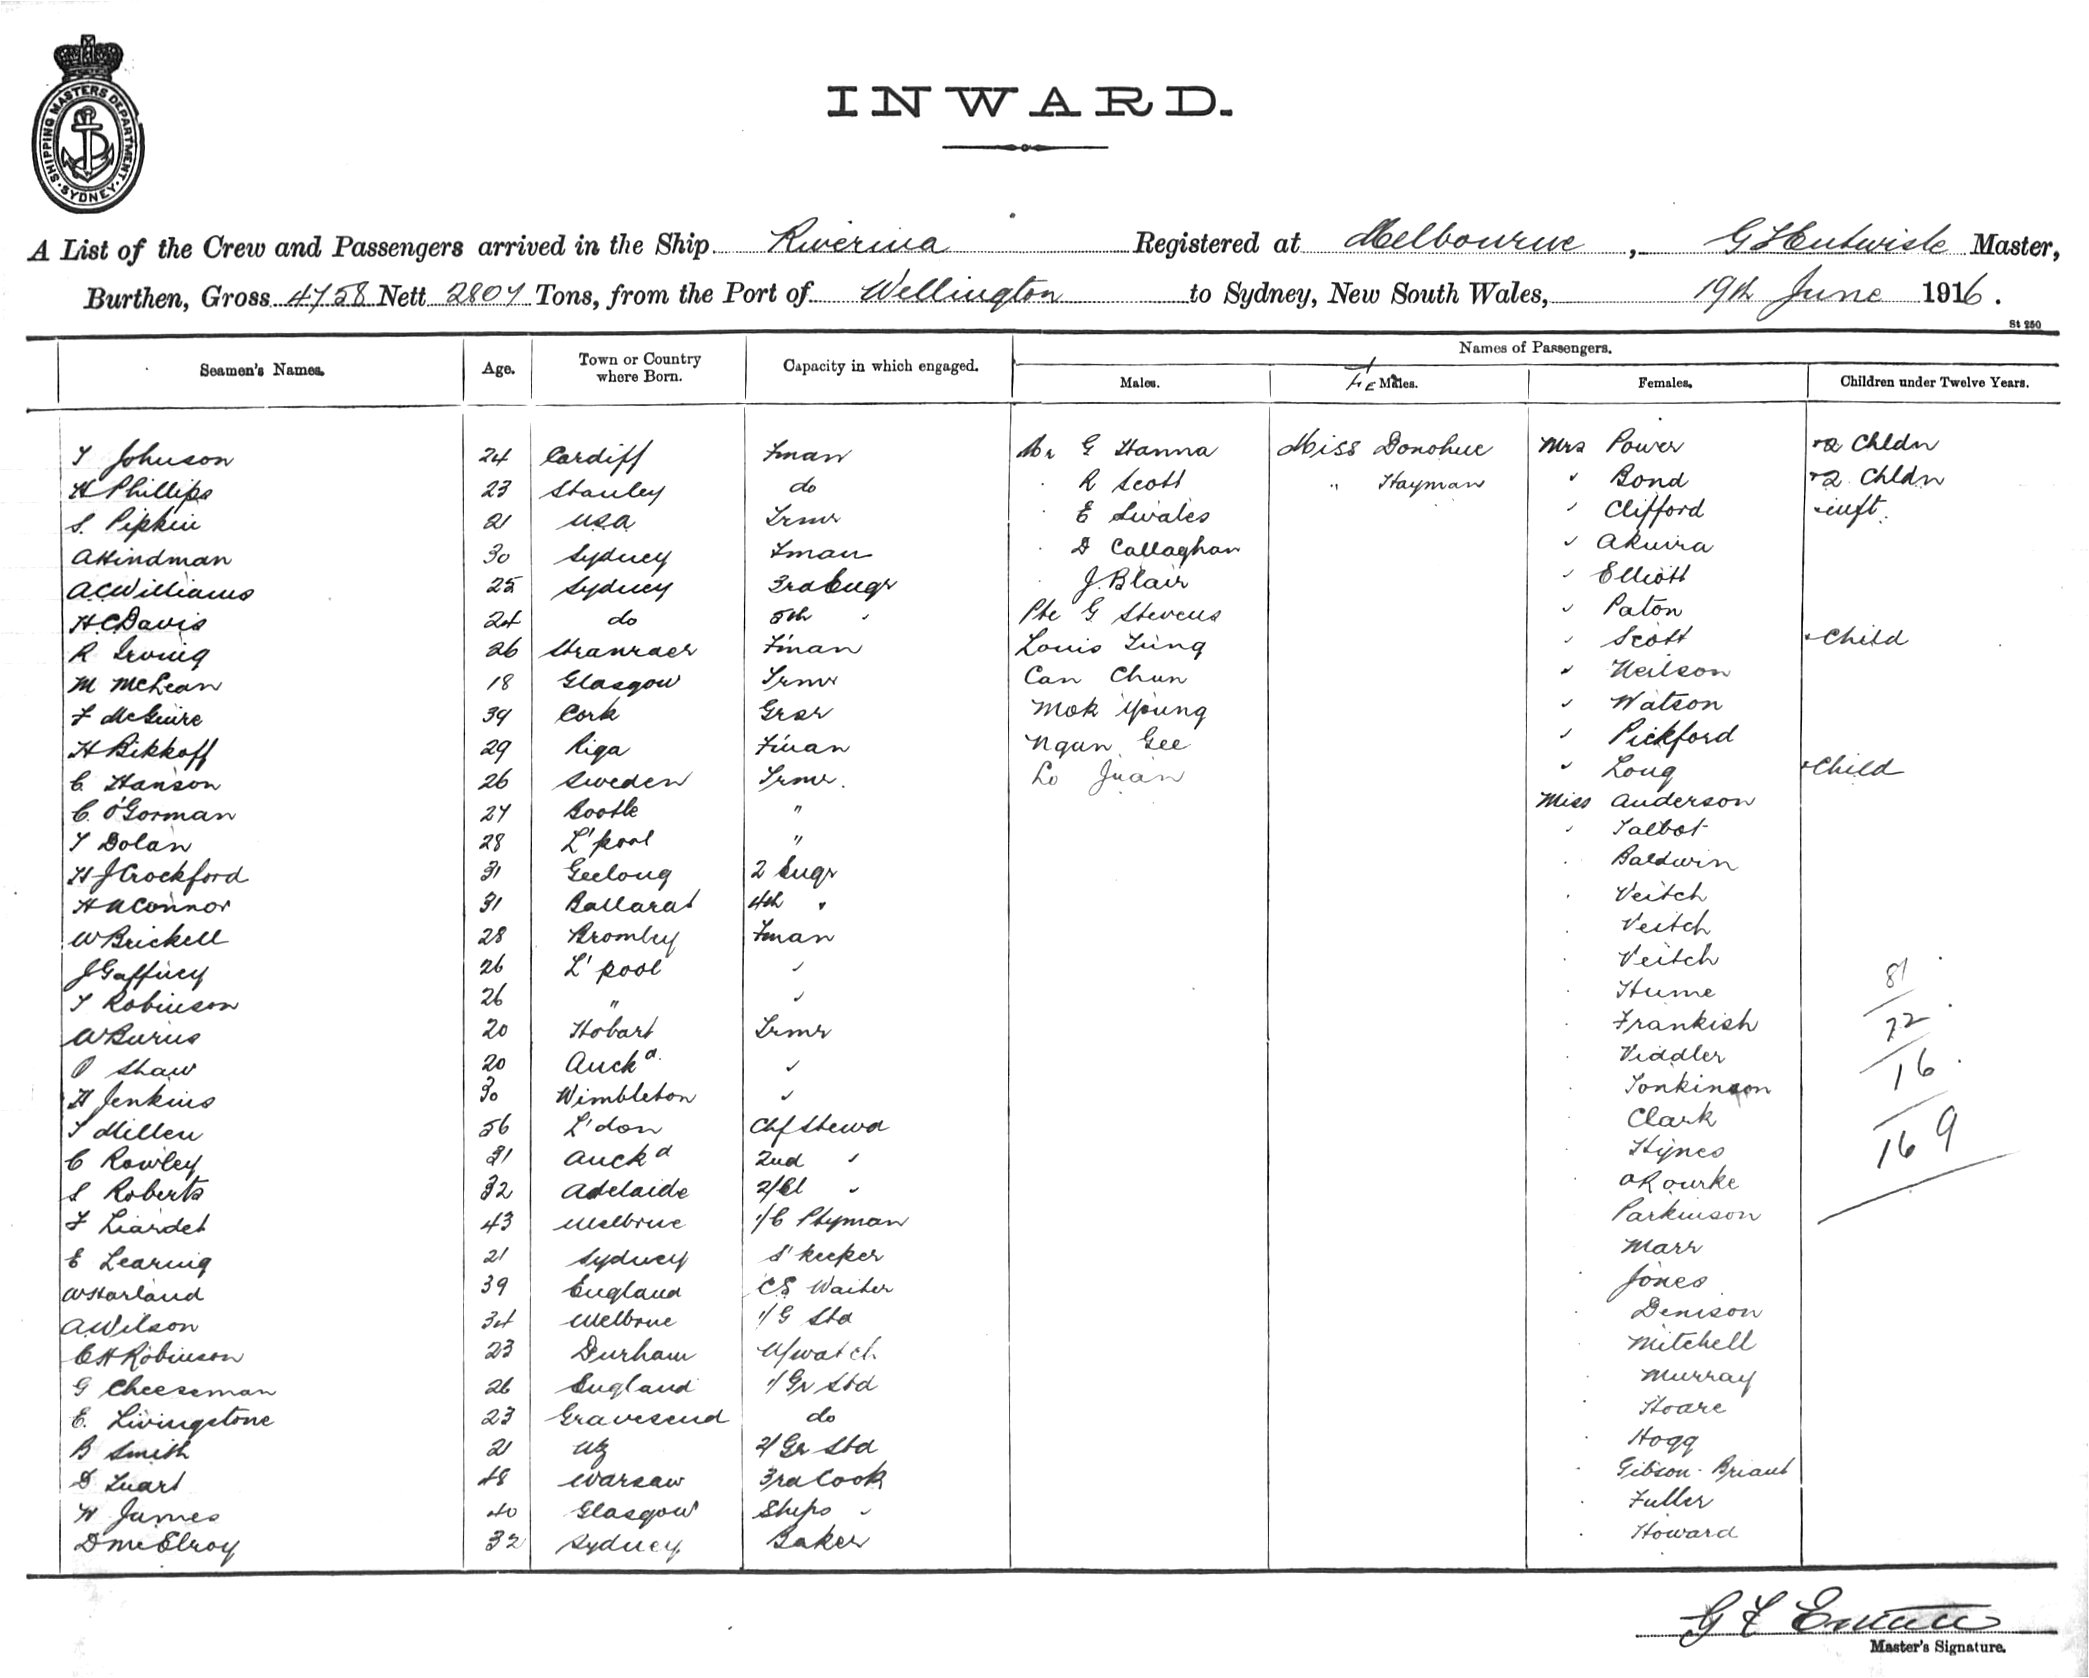 SHIPPING MASTERS DEPARTMENT. SYDNEY.
INWARD.
A List of the Crew and Passengers arrived in the Ship Riverina Registered at Melbourne, G F Entwisle Master,
Burthen, Gross 4758 Nett 2807 Tons, from the Port of Wellington to Sydney, New South Wales, 19th June 1916.
St 250
Seamen's Names. Age. Town or Country where Born. Capacity in which engaged. Names of Passengers.
Males. FeMales. Females. Children under Twelve Years.
T Johnson 24 Cardiff Fman Mr G Hanna Miss Donohue Mrs Power +2 Chldn
H Phillips 23 Stanley do R Scott " Hayman Bond +2 Chldn
S. Pipkin 21 USA Trmr E Swales Clifford inft.
A Hindman 30 Sydney Fman D Callaghan
A C Williams 25 Sydney 3rd Engr J. Blair Elliott
H C Davis 24 do 5th Pte G Stevens Paton
R Irving 26 Stranraer Fman Louis Scott Child
M McLean 18 Glasgow Trmr Can Chun Neilson
F McGuire 39 Cork Grsr Mok Young Watson
H Bikkoff 29 Riga Fman Ngun Gee Pickford
C Hanson 26 Sweden Trmr. Lo Juan Long Child
C. O'Gorman 27 Bootle " Miss Anderson
T Dolan 28 L'pool " Talbot
H J Crockford 31 Geelong 2 Engr Baldwin
H O'Connor 31 Ballarat 4th " Veitch
W Brickell 28 Bromley Fman Veitch
J Gaffney 26 L'pool " Veitch 81
T Robinson 26 " " Hume
W Burns 20 Hobart Trmr Frankish 72
Shaw 20 Auckd. " Viddler
H Jenkins 30 Wimbleton " Tonkinson 16
T Millen 56 L'don Chf Stewd Clark
C Rowley 31 Auckd 2nd " Hynes 169
S Roberts 32 Adelaide 2/Cl " O'Rourke
F Liardet 43 Melbrne 1/C Ptyman Parkinson
E Learing 21 Sydney S'keeper Marr
W Harland 39 England CS Waiter Jones
A Wilson 34 Melbrne 1/G Std Denison
C H Robinson 23 Durham N/watch. Mitchell
G Cheeseman 26 England 1/Gr Std Murray
E. Livingstone 23 Gravesend do Hoare
B Smith 21 NZ 2/Gr Std Hogg
D Luart 48 Warsaw 3rd Cook Gibson-Briant
W James 40 Glasgow Ships " Fuller
D McElroy 32 Sydney Baker Howard
G F Entwisle
Master's Signature.